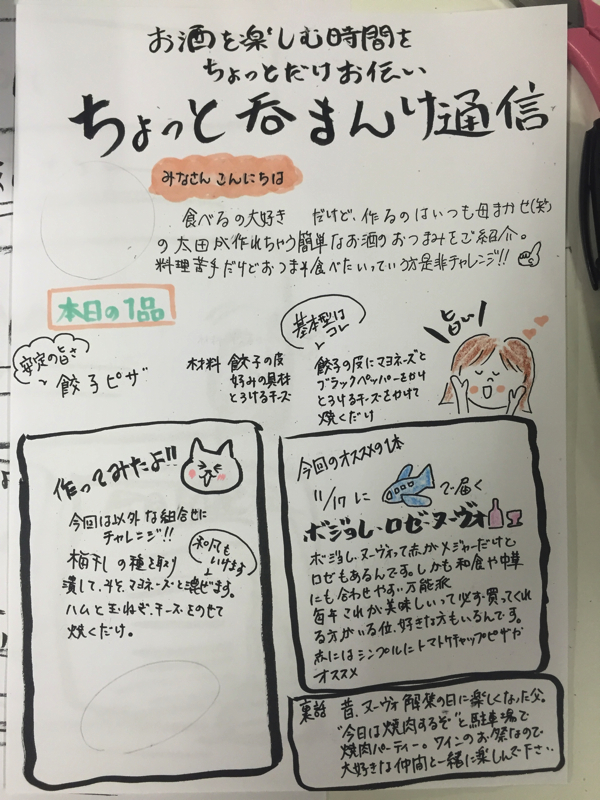 お酒を楽しむ時間を
ちょっとだけお伝い
ちょっと呑まんけ通信
みなさんこんにちは
食べるの大好き だけど、作るのはいつも母まかせ(笑)
の太田が作れちゃう簡単なお酒のおつまみをご紹介。
料理苦手だけどおつまみ食べたいっていう方是非チャレンジ!!
本日の1品
安定の旨さ
餃子ピザ
材料 餃子の皮
好みの具材
とろけるチーズ
基本型は
コレ
餃子の皮にマヨネーズと
ブラックペッパーをかけ
とろけるチーズをかけて
焼くだけ
旨い
作ってみたよ!!
今回は以外な組合せに
チャレンジ!!
和風も
いけます
梅干しの種を取り
潰して、みそ、マヨネーズと混ぜます。
ハムと玉ねぎ、チーズをのせて
焼くだけ。
今回のオススメの1本
11/17に で届く
ボジョレ・ロゼ・ヌーヴォ
ボジョレ・ヌーヴォって赤がメジャーだけど
ロゼもあるんです。しかも和食や中華
にも合わせやすい万能派
毎年これが美味しいって必ず買ってくれ
る方がいる位、好きな方もいるんです。
赤にはシンプルにトマトケチャップピザが
オススメ
裏話 昔、ヌーヴォ解禁の日に楽しくなった父。
"今日は焼肉するぞ"と駐車場で
焼肉パーティー。ワインのお祭なので
大好きな仲間と一緒に楽しんで下さい